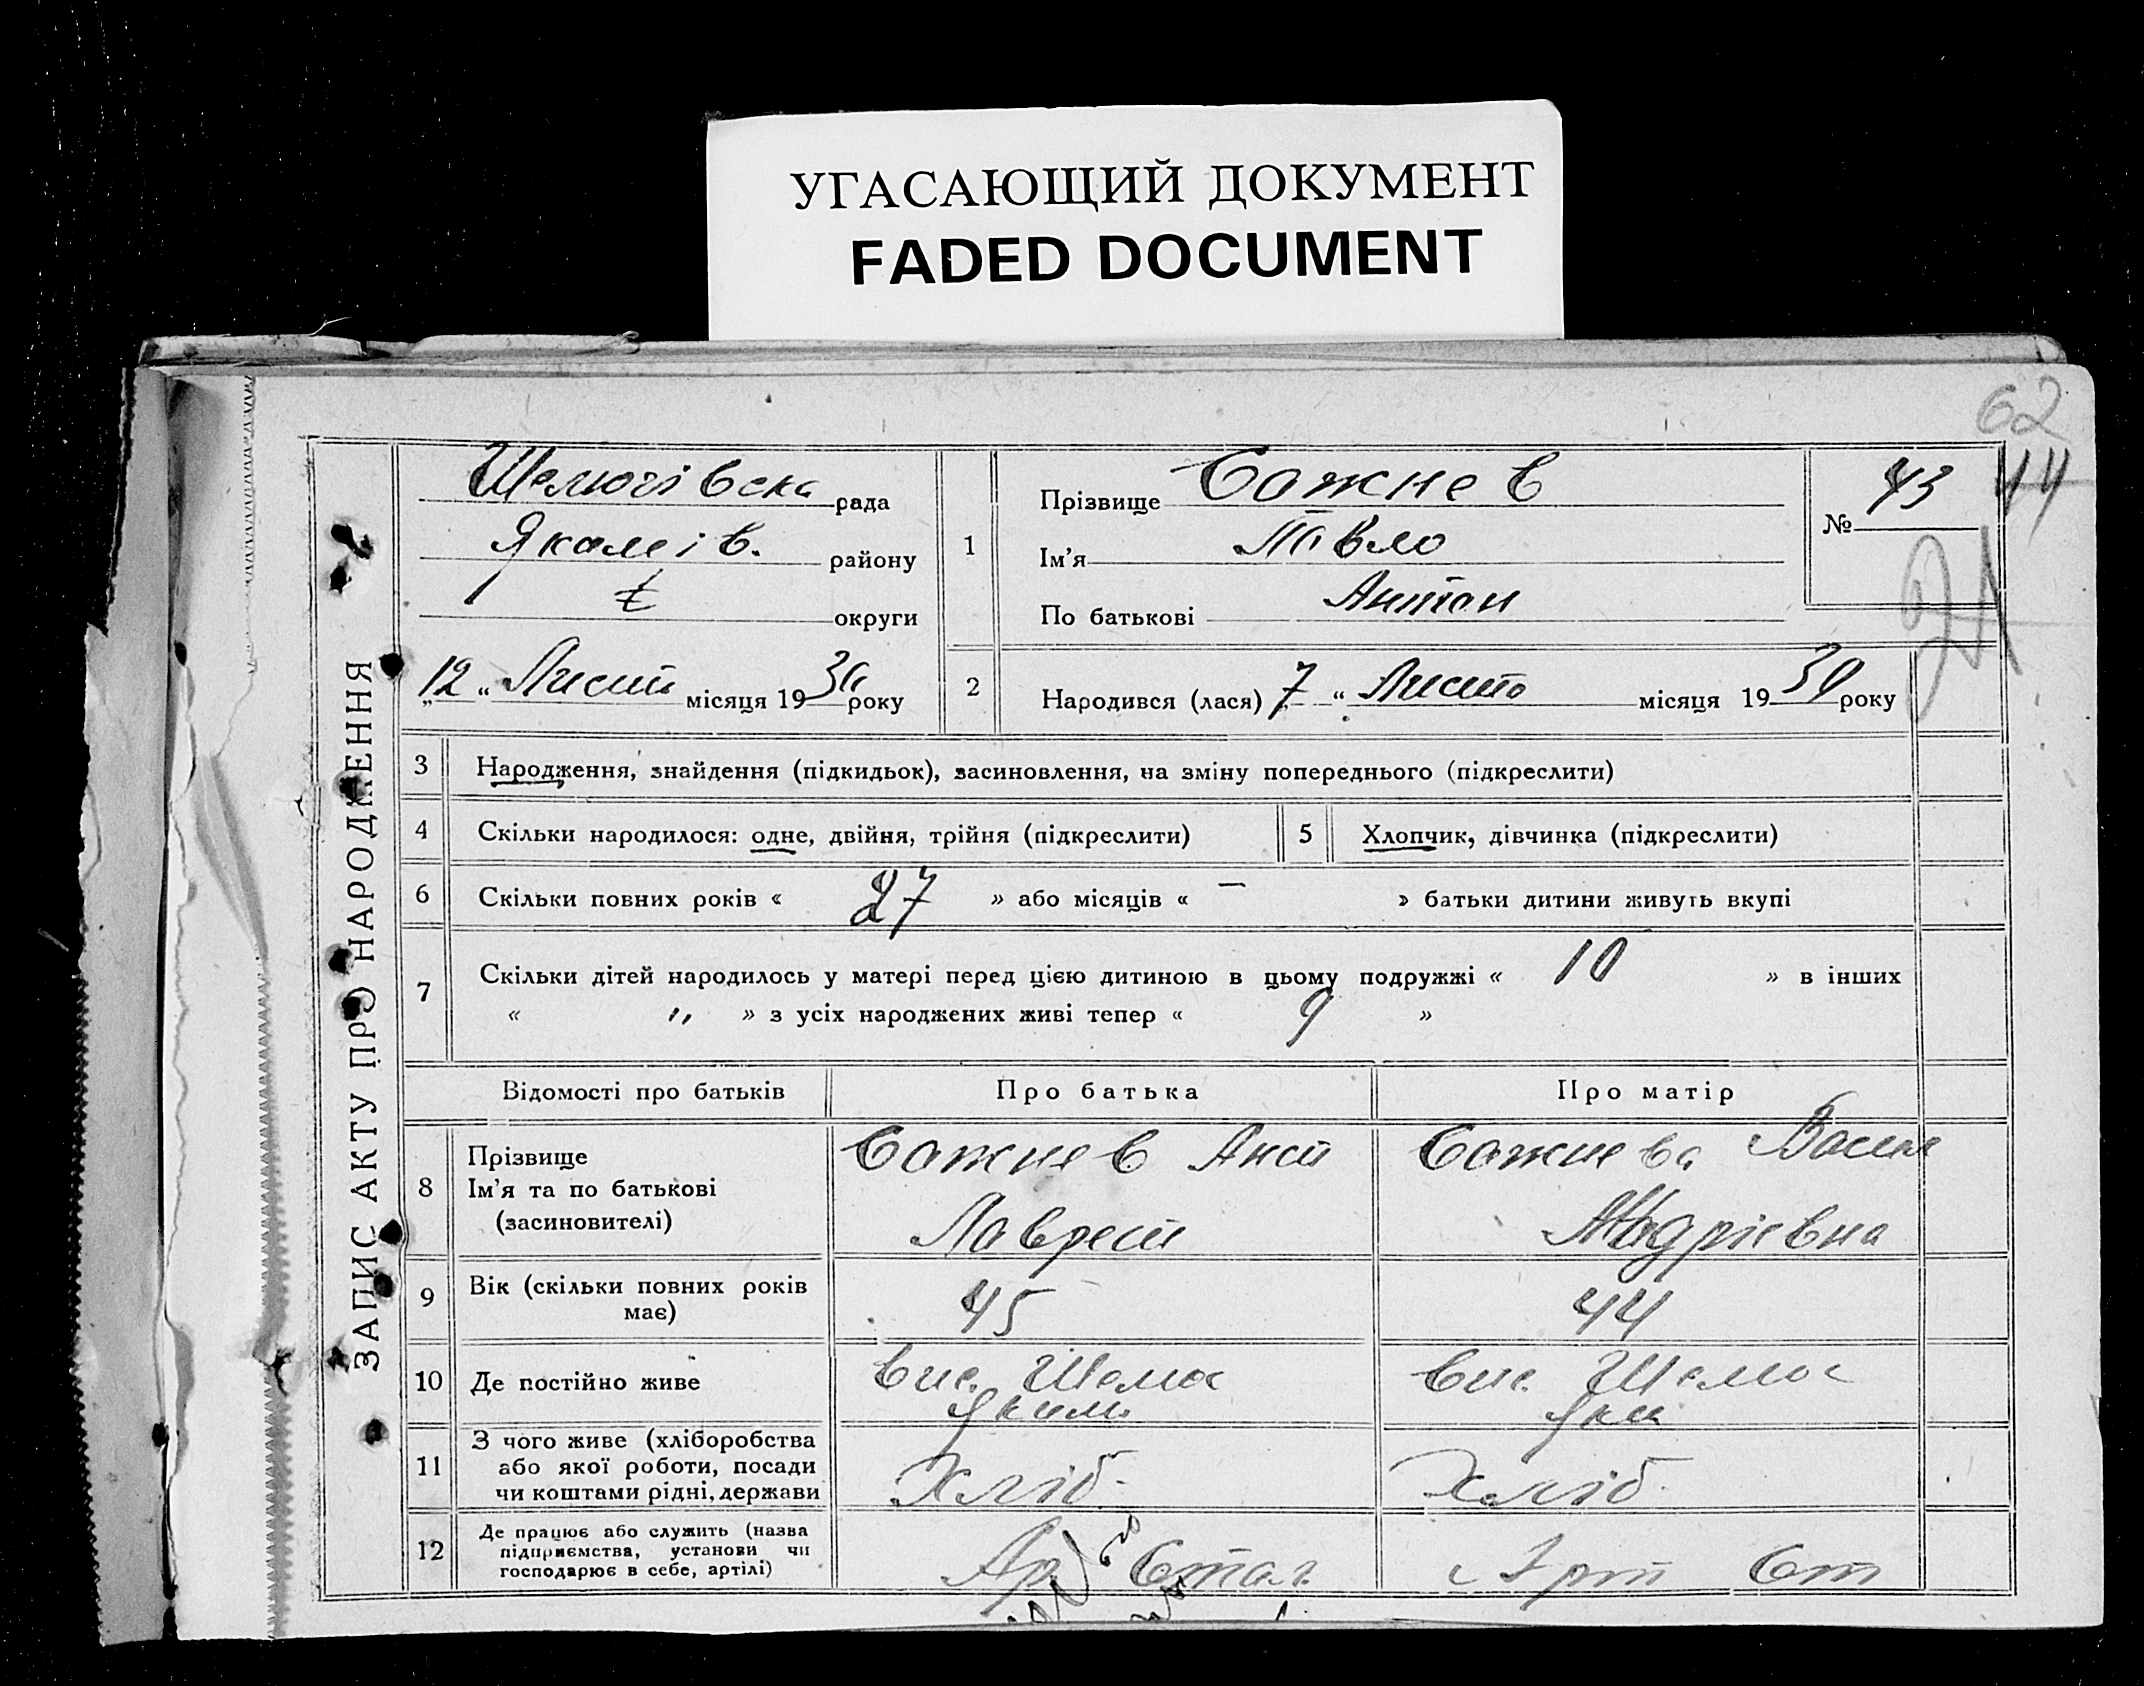 УГАСАЮЩИЙ ДОКУМЕНТ
FADED DOCUMENT
62
ЗАПИС АКТУ ПРО НАРОДЖЕННЯ
рада
району
округи
„12“ Лист місяця 1930 року
1
Прізвище Бажнев
Ім’я Павло
По батькові Антон
№ 43
44
2
Народився (лася) „7“ Листо місяця 1930 року
3 Народження, знайдення (підкидьок), засиновлення, на зміну попереднього (підкреслити)
4 Скільки народилося: одне, двійня, трійня (підкреслити)
5 Хлопчик, дівчинка (підкреслити)
6 Скільки повних років « 27 » або місяців « — » батьки дитини живуть вкупі
7 Скільки дітей народилось у матері перед цією дитиною в цьому подружжі « 10 » в інших
« „ » з усіх народжених живі тепер « 9 »
Відомості про батьків Про батька Про матір
8 Прізвище
Ім’я та по батькові
(засиновителі)
Бажнев Ант
Лаврент
Бажнева
9 Вік (скільки повних років
має)
45 44
10 Де постійно живе
11 З чого живе (хліборобства
або якої роботи, посади
чи коштами рідні, держави
Хліб. Хліб.
12 Де працює або служить (назва
підприємства, установи чи
господарює в себе, артілі)
Арт Ст